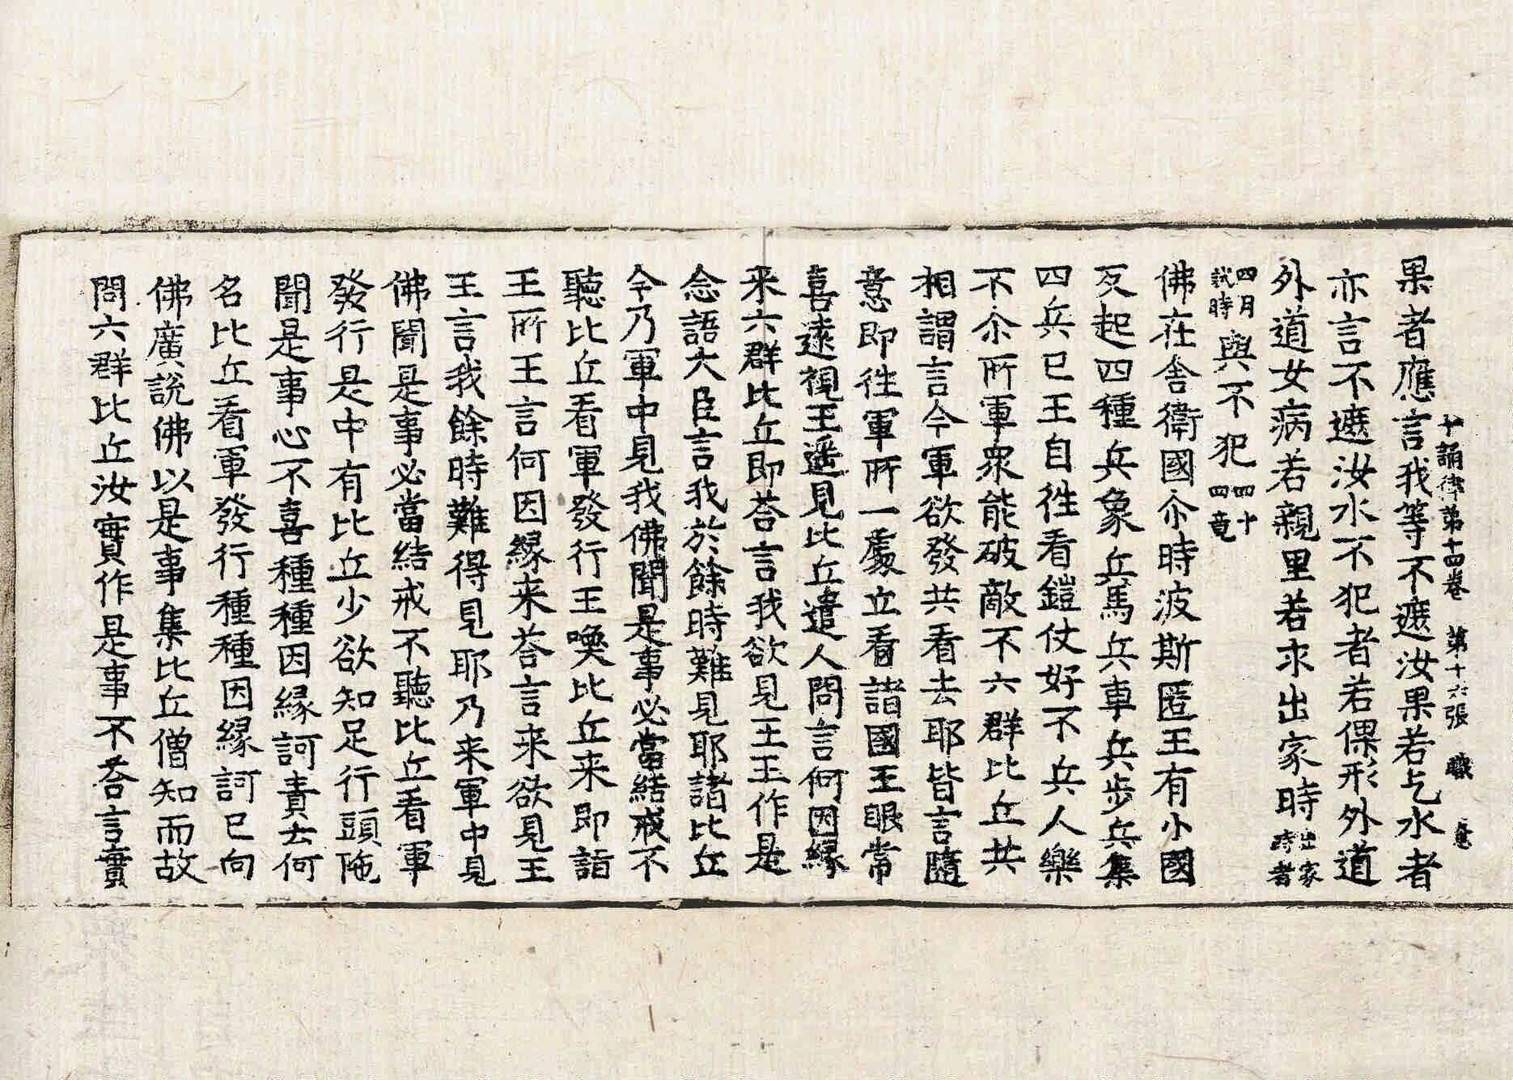 十誦律第十四卷 第十六張 職
果者應言我等不遮汝果若乞水者
亦言不遮汝水不犯者若倮形外道
外道女病若親里若求出家時出家時者
四月試時與不犯四十四竟
佛在舍衛國尒時波斯匿王有小國
反起四種兵象兵馬兵車兵步兵集
四兵已王自徃看鎧仗好不兵人樂
不尒所軍衆能破敵不六群比丘共
相謂言今軍欲發共看去耶皆言隨
意即徃軍所一處立看諸國王眼常
喜遠視王遥見比丘遣人問言何因縁
来六群比丘即荅言我欲見王王作是
念語大臣言我於餘時難見耶諸比丘
今乃軍中見我佛聞是事必當結戒不
聽比丘看軍發行王喚比丘来即詣
王所王言何因縁来荅言来欲見王
王言我餘時難得見耶乃来軍中見
佛聞是事必當結戒不聽比丘看軍
發行是中有比丘少欲知足行頭陁
聞是事心不喜種種因縁訶責云何
名比丘看軍發行種種因縁訶已向
佛廣說佛以是事集比丘僧知而故
問六群比丘汝實作是事不荅言實